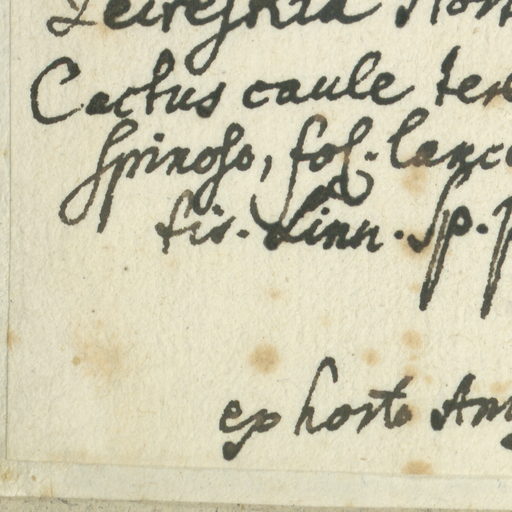 Cactus caule ter
spinoso, fol. lance
sis. Linn. Sp. p
ex horto Am